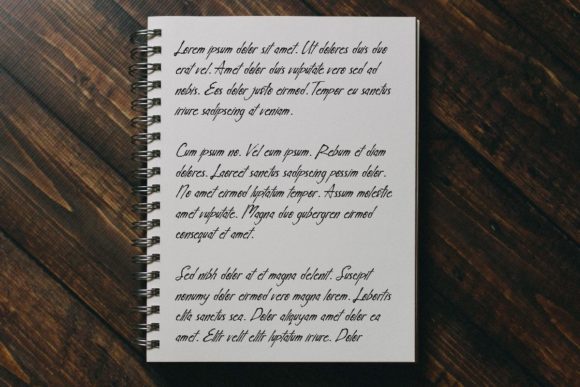 Lorem ipsum dolor sit amet. Ut dolores duis duo
erat vel. Amet dolor duis vulputate vero sed ad
nobis. Eos dolor justo eirmod. Tempor eu sanctus
iriure sadipscing at veniam.
Cum ipsum no. Vel eum ipsum. Rebum et diam
dolores. Laoreet sanctus sadipscing possim dolor.
No amet eirmod luptatum tempor. Assum molestie
amet vulputate. Magna duo gubergren eirmod
consequat et amet.
Sed nibh dolor at et magna delenit. Suscipit
nonumy dolor eirmod vero magna lorem. Lobortis
elita sanctus sea. Dolor aliquyam amet dolor ea
amet. Elitr velit elitr luptatum iriure. Dolor